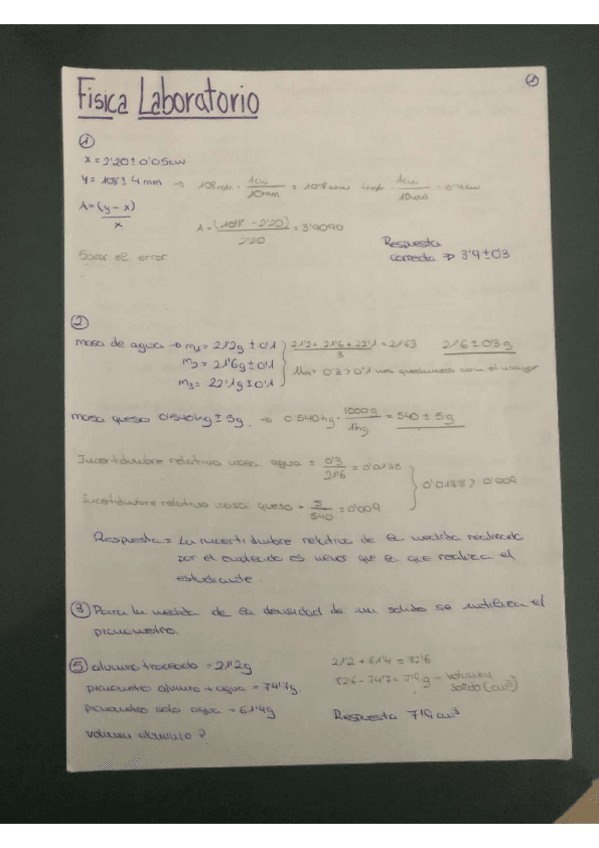 Física Laboratorio
1
X = 2'20 ± 0'05 cm
Y = 108 ± 4 mm → 108 mm · 1cm/10mm = 10'8 4 mm · 1cm/10mm = 0'4 cm
A = (y - x)/x
A = (10'8 - 2'20)/2'20 = 3'9090
Sacar el error
Respuesta correcta ⇒ 3'9 ± 0'3
2
masa de agua → m₁ = 21'2g ± 0'1
m₂ = 21'6g ± 0'1
m₃ = 22'1g ± 0'1
21'2 + 21'6 + 22'1/3 = 21'63 21'6 ± 0'3 g
0'3 > 0'1 nos quedamos con el mayor
masa queso 0'540kg ± 5g. → 0'540kg · 1000g/1kg = 540 ± 5g
Incertidumbre relativa masa agua = 0'3/21'6 = 0'0138
Incertidumbre relativa masa queso = 5/540 = 0'009
0'0138 > 0'009
Respuesta = La incertidumbre relativa de la medida realizada
por el empleado es menor que la que realiza el
estudiante.
3 Para la medida de la densidad de un solido se utiliza el
picnometro.
5 aluminio troceado = 21'2g
picnometro aluminio + agua = 74'7g.
picnometro solo agua = 61'4g
volumen aluminio?
21'2 + 61'4 = 82'6
82'6 - 74'7 = 7'9 g = volumen solido (cm³)
Respuesta 7'9 cm³